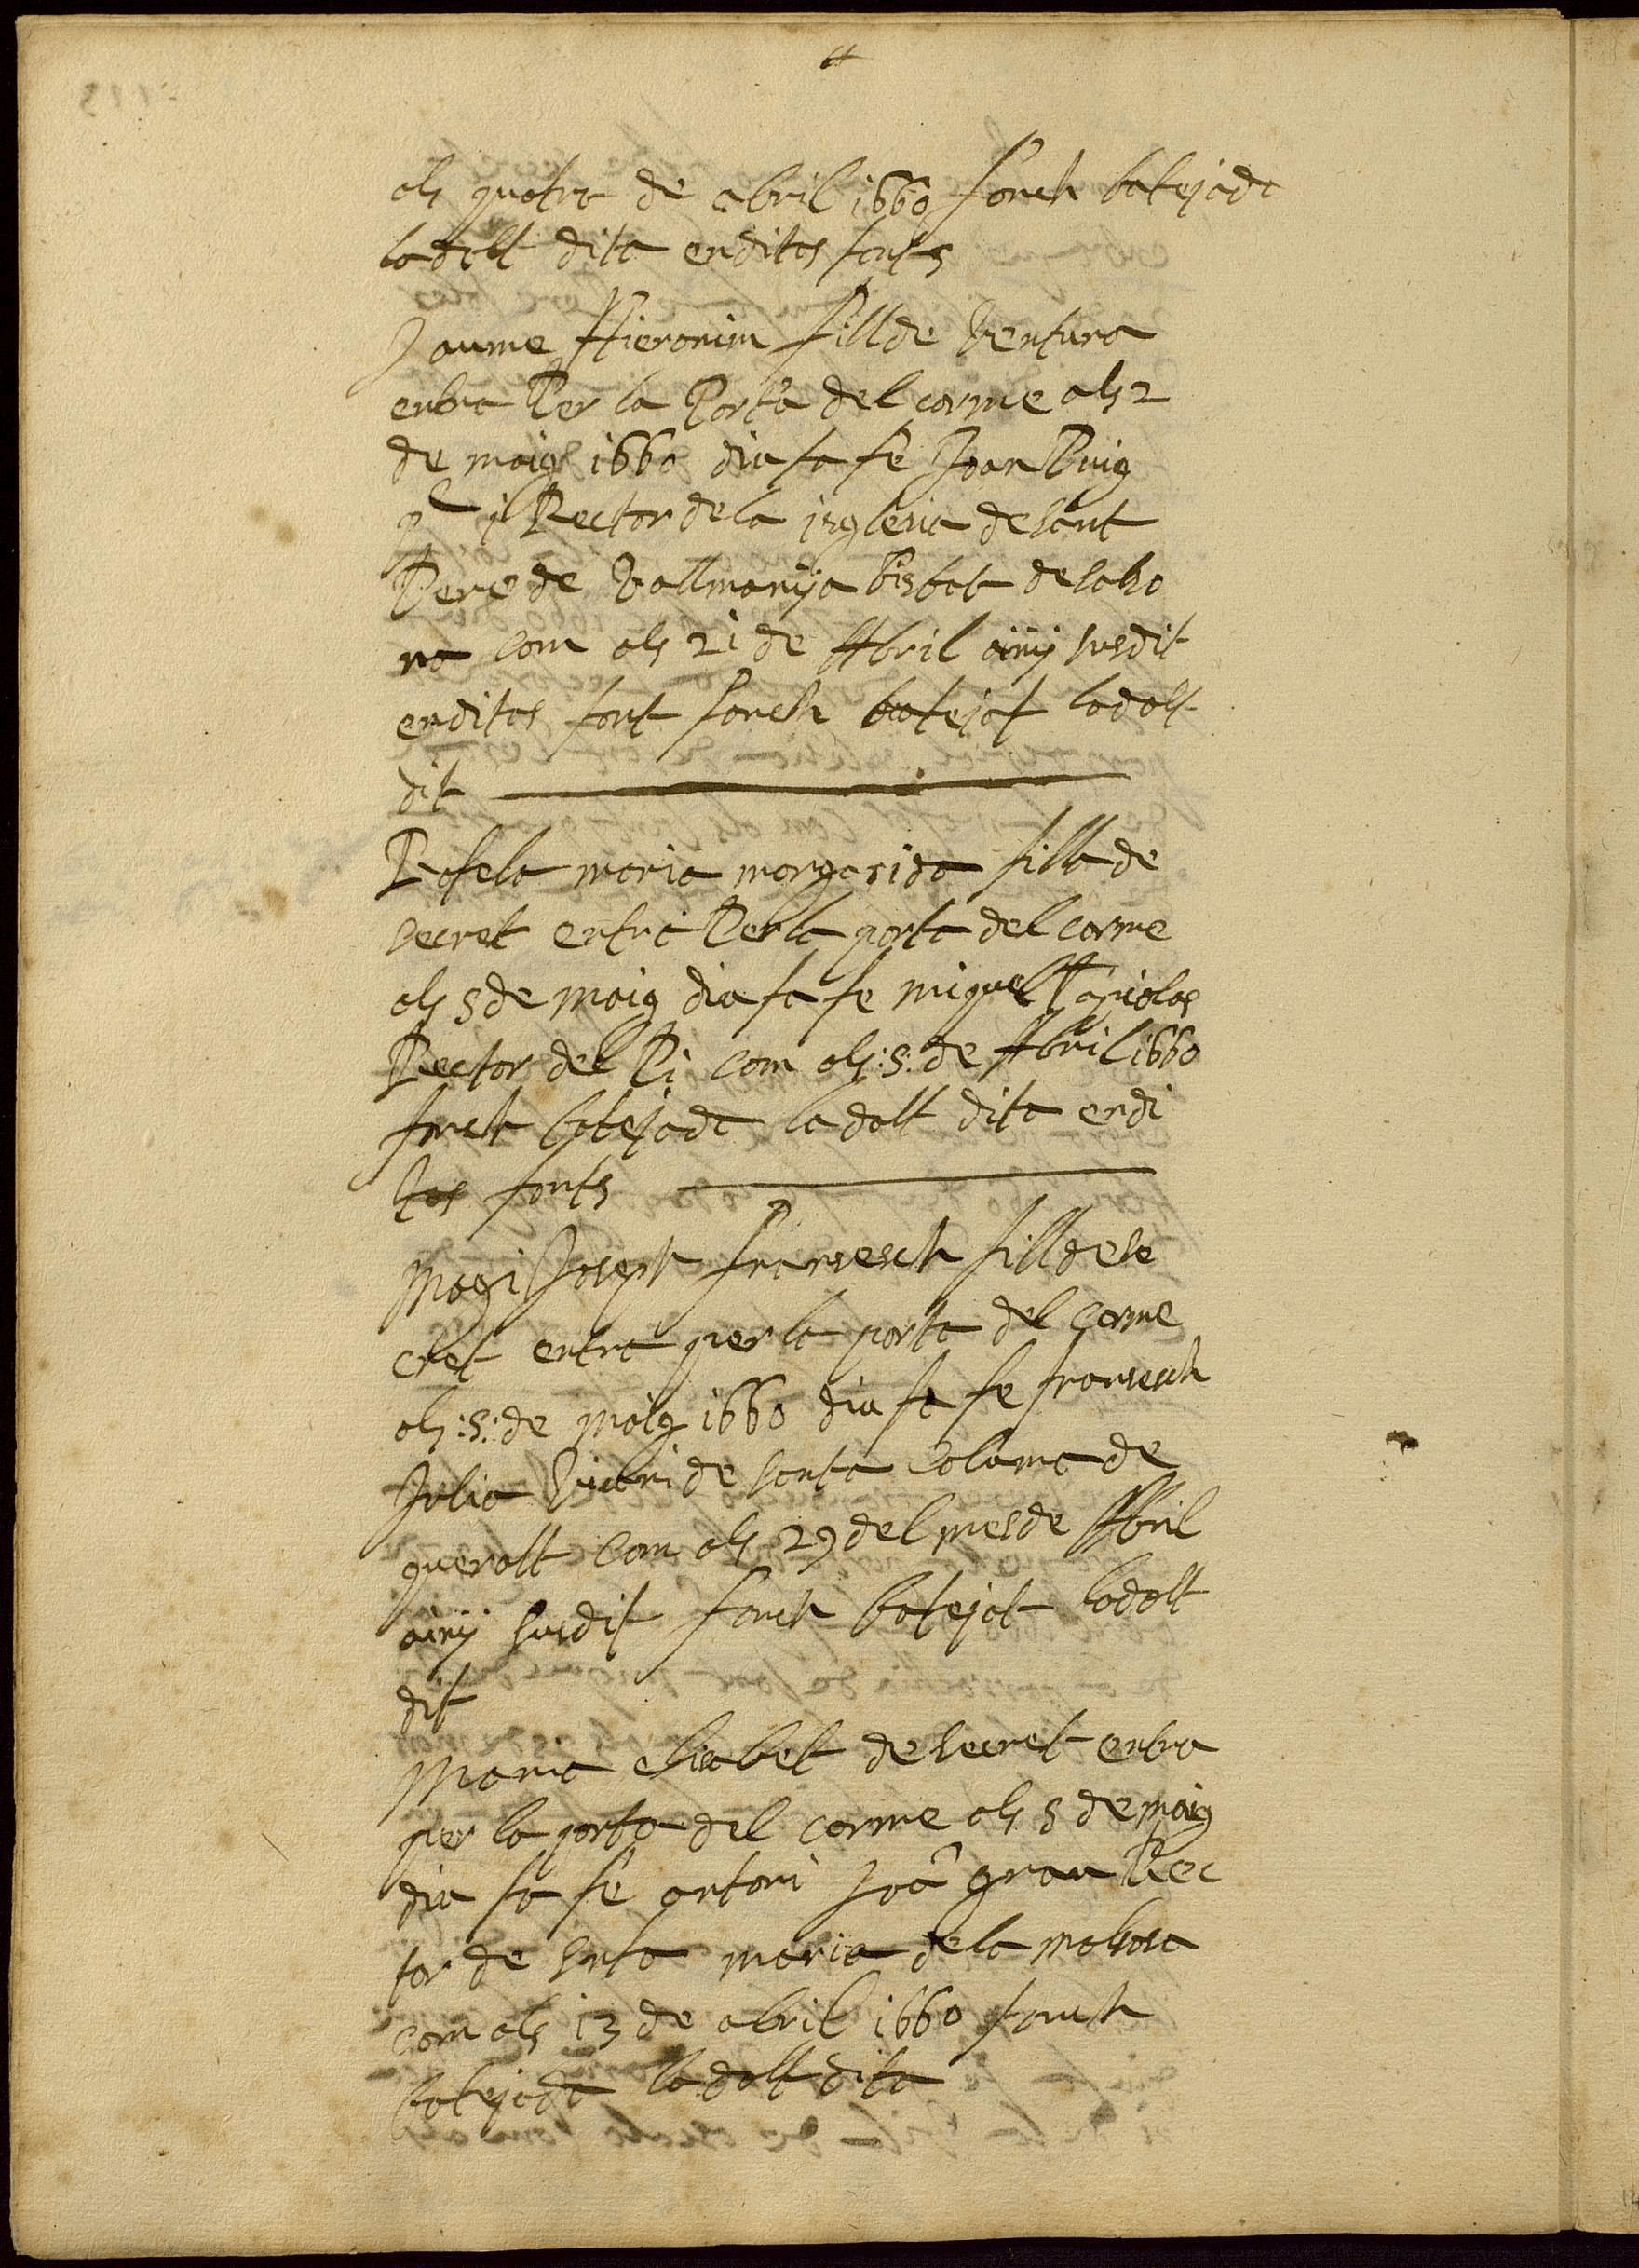 als quatre de abril 1660 fonch batejada
la dalt dita en ditas fonts
Jaume Hieronim fill de Ventura
entra Per la Porta del carme als 2
de maig 1660 diu fa fe Joan Puig
Rector de la isglesia de sant
Pere de Vallmanÿa bisbat de solso
na com als 21 de Abril añÿ susdit
en ditas font fonch batejat lo dalt
dit
Rafela maria margarida filla de
secret entra Per la porta del carme
als 5 de maig diu fa fe miquel Tapiolas
Rector del Pi com als :5: de Abril 1660
fonch batejada la dalt dita en di
tas fonts
Magi Joseph fransesch fill de se
cret entra per la porta del carme
als :5: de maig 1660 diu fa fe fransesch
Julia Vicari de santa Coloma de
queralt com als 29 del mes de Abril
añÿ susdit fonch batejat lo dalt
dit
Maria elisabet de secret entra
per la porta del carme als 5 de maig
diu fa fe antoni Joã grau Rec
tor de snta maria de la molsosa
com als 13 de abril 1660 fonch
batejada la dalt dita